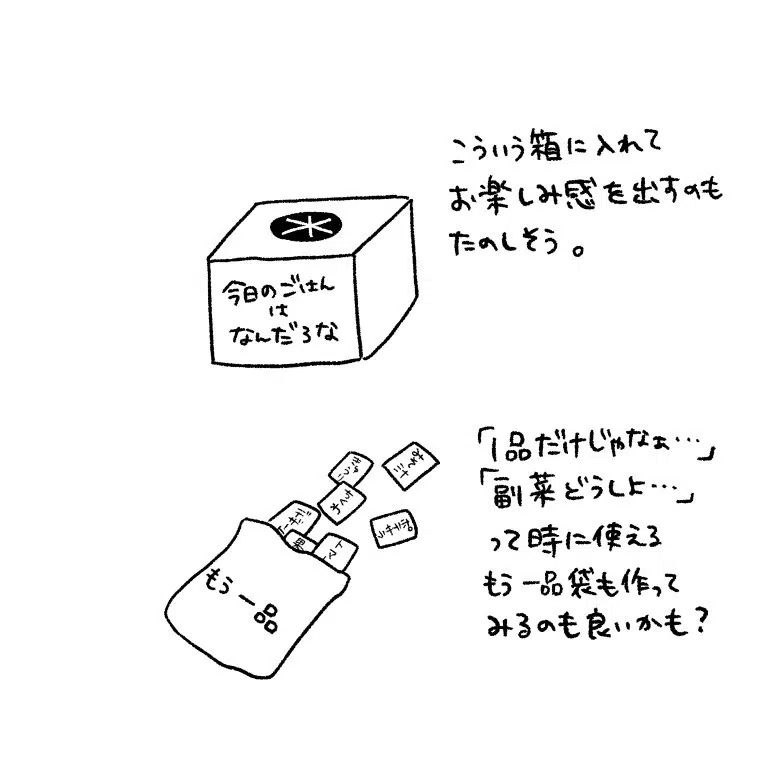 こういう箱に入れて
お楽しみ感を出すのも
たのしそう。
今日のごはん
は
なんだろな
「1品だけじゃなぁ…」
「副菜どうしよ…」
って時に使える
もう一品袋も作って
みるのも良いかも?
もう一品
トマト